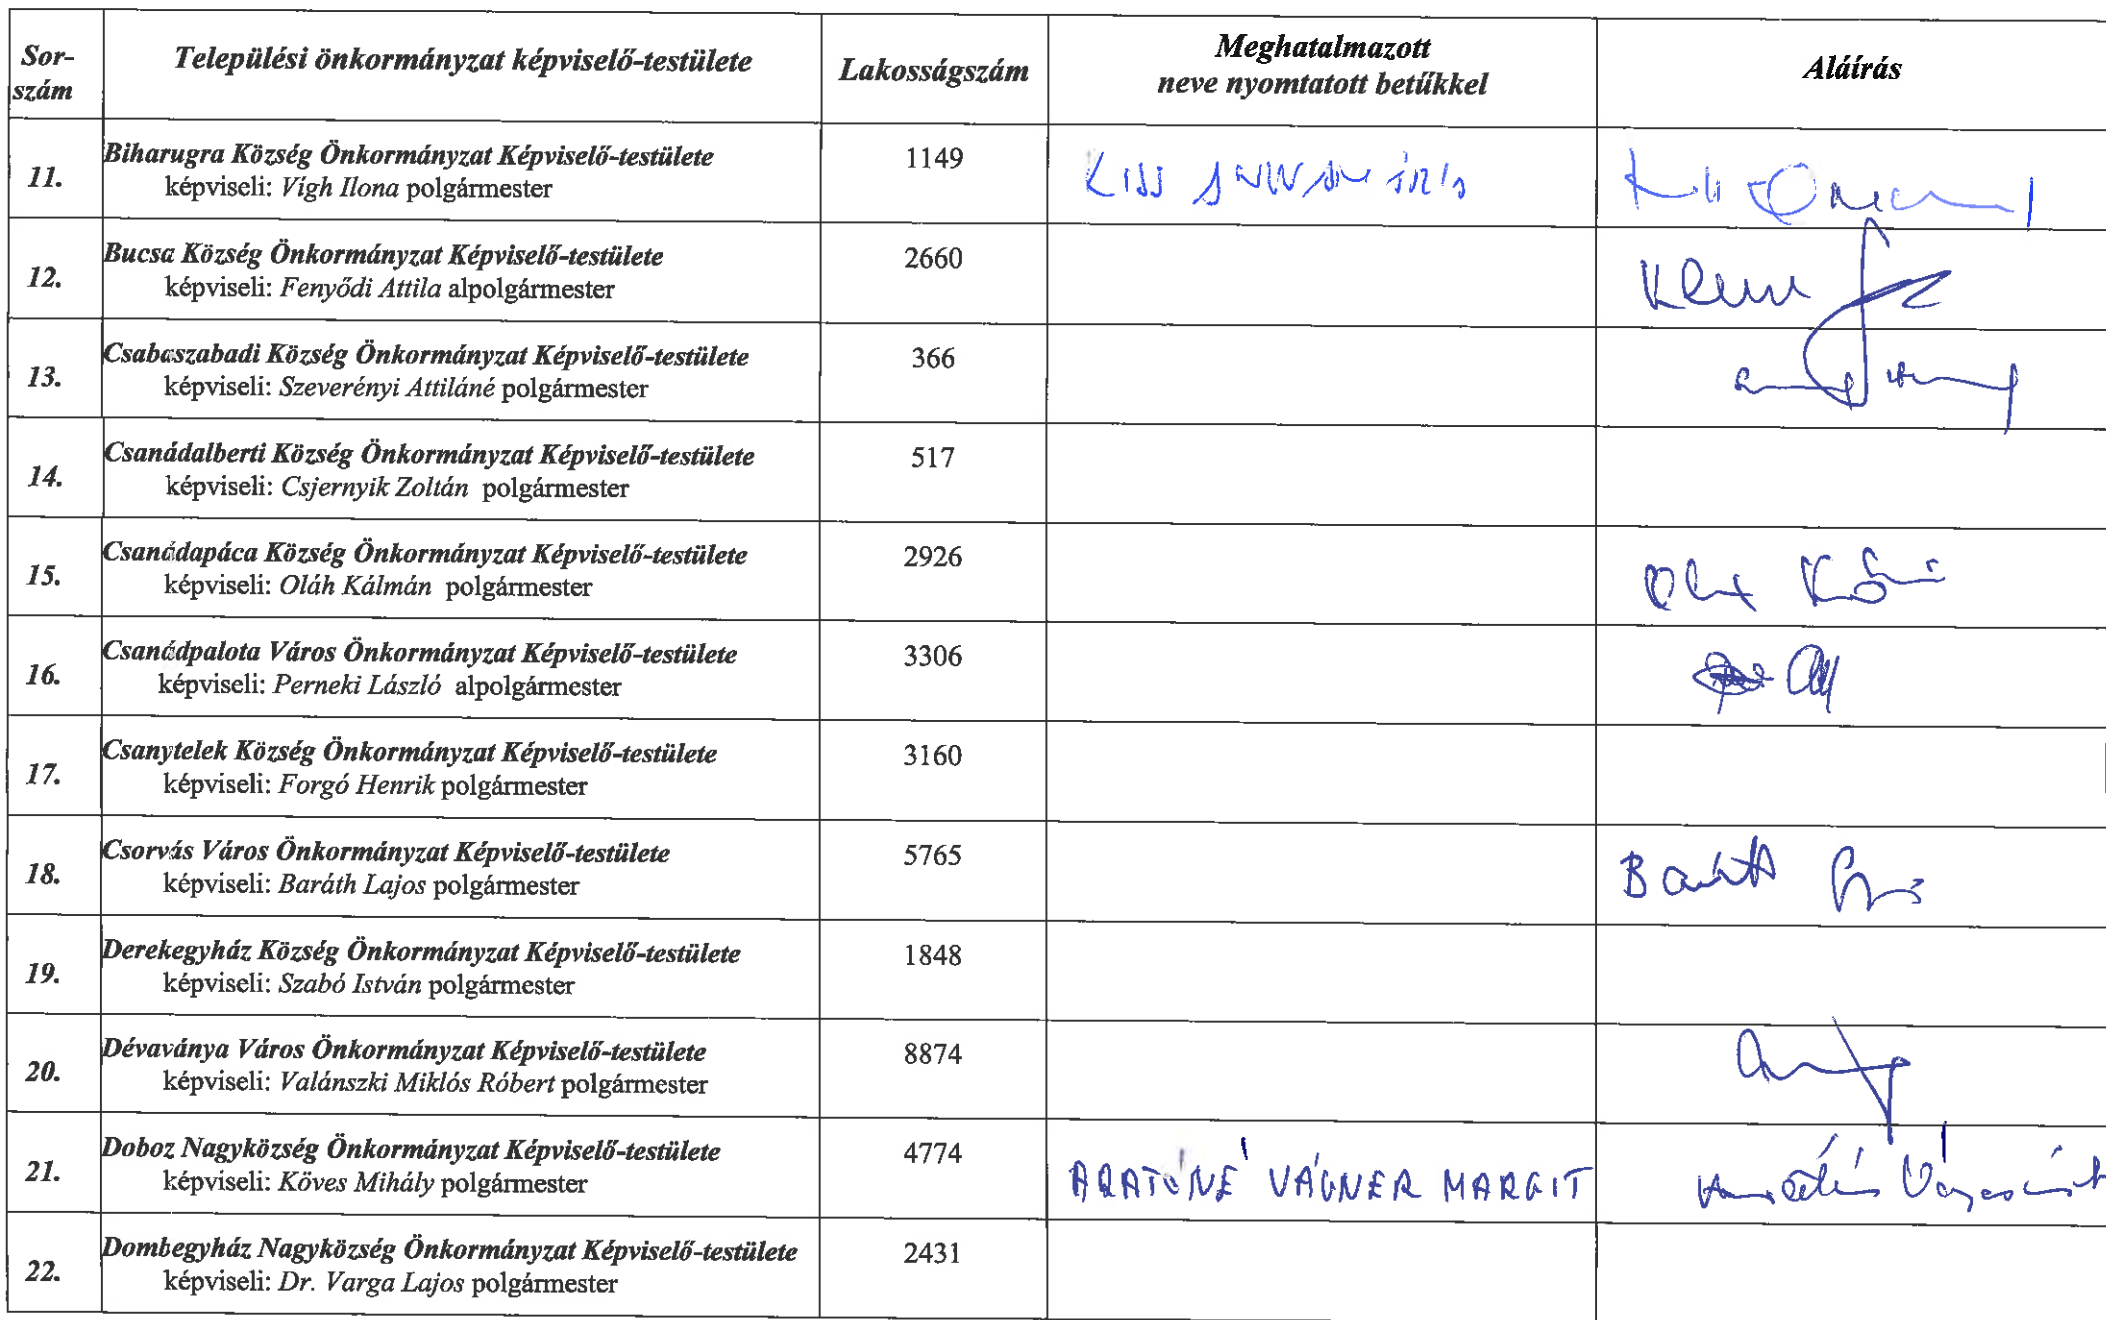 Sor-
szám
Települési önkormányzat képviselő-testülete
Lakosságszám
Meghatalmazott
neve nyomtatott betűkkel
Aláírás
11.
Biharugra Község Önkormányzat Képviselő-testülete
képviseli: Vígh Ilona polgármester
1149
KISS
12.
Bucsa Község Önkormányzat Képviselő-testülete
képviseli: Fenyődi Attila alpolgármester
2660
13.
Csabaszabadi Község Önkormányzat Képviselő-testülete
képviseli: Szeverényi Attiláné polgármester
366
14.
Csanádalberti Község Önkormányzat Képviselő-testülete
képviseli: Csjernyik Zoltán polgármester
517
15.
Csanádapáca Község Önkormányzat Képviselő-testülete
képviseli: Oláh Kálmán polgármester
2926
16.
Csanádpalota Város Önkormányzat Képviselő-testülete
képviseli: Perneki László alpolgármester
3306
17.
Csanytelek Község Önkormányzat Képviselő-testülete
képviseli: Forgó Henrik polgármester
3160
18.
Csorvás Város Önkormányzat Képviselő-testülete
képviseli: Baráth Lajos polgármester
5765
Baráth
19.
Derekegyház Község Önkormányzat Képviselő-testülete
képviseli: Szabó István polgármester
1848
20.
Dévaványa Város Önkormányzat Képviselő-testülete
képviseli: Valánszki Miklós Róbert polgármester
8874
21.
Doboz Nagyközség Önkormányzat Képviselő-testülete
képviseli: Köves Mihály polgármester
4774
ARATÓNÉ VÁGNER MARGIT
22.
Dombegyház Nagyközség Önkormányzat Képviselő-testülete
képviseli: Dr. Varga Lajos polgármester
2431